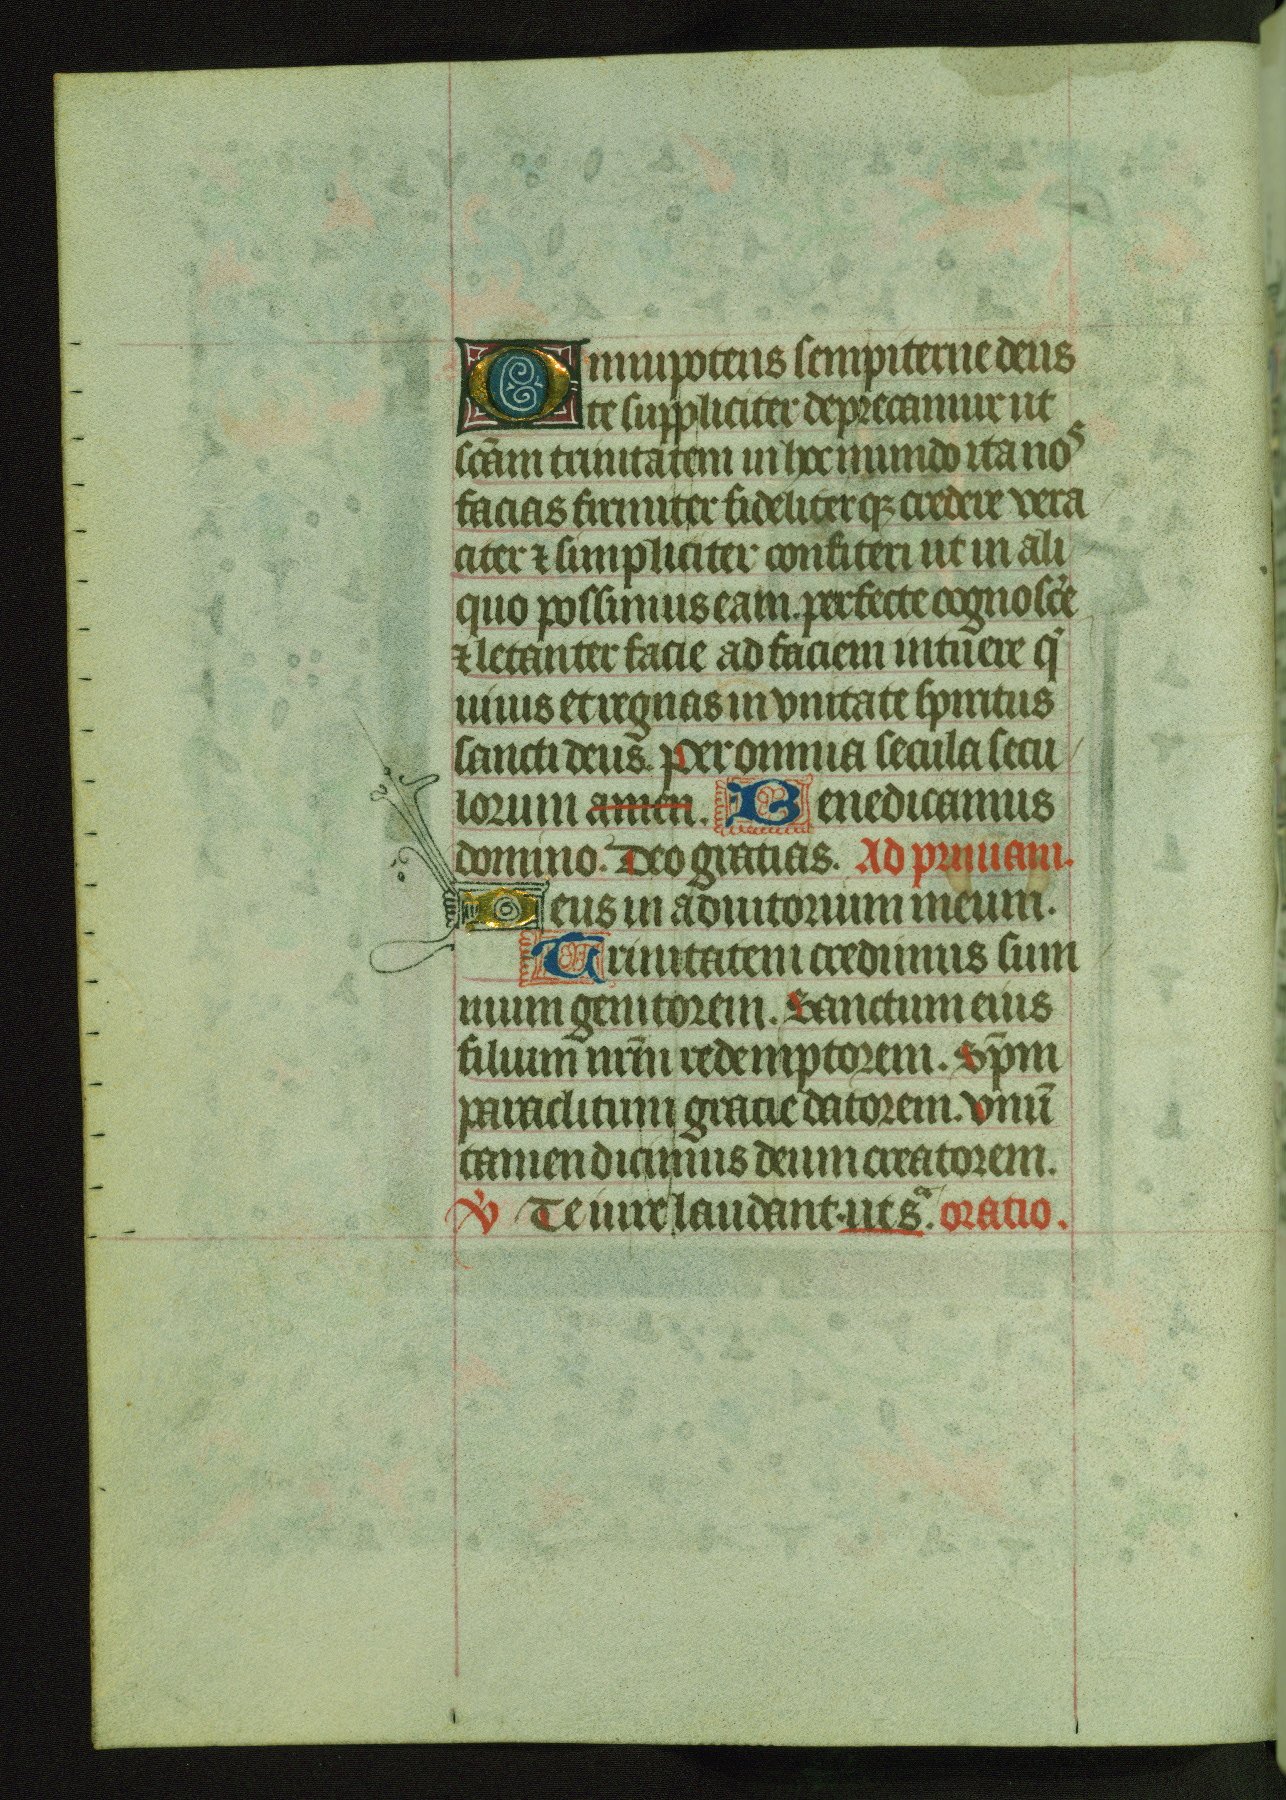 Omnipotens sempiterne deus
te suppliciter deprecamur ut
scām trinitatem in hoc mundo ita nos
facias firmiter fideliter qȝ credere vera
citer ⁊ simpliciter confiteri ut in ali
quo possimus eam perfecte cognosc̄e
⁊ letanter facie ad faciem intuere qͥ
uiuis et regnas in vnitate spiritus
sancti deus. Per omnia secula secu
lorum amen. Benedicamus
domino. Deo gratias. Ad primam.
Deus in adiutorium meum.
Trinitatem credimus sum
mum genitorem. Sanctum eius
filium nr̄m redemptorem. Sp̄m
paraclitum gracie datorem. Vnū
tamen dicimus deum creatorem.
℣ Te iure laudant. ut sᵃ. oratio.